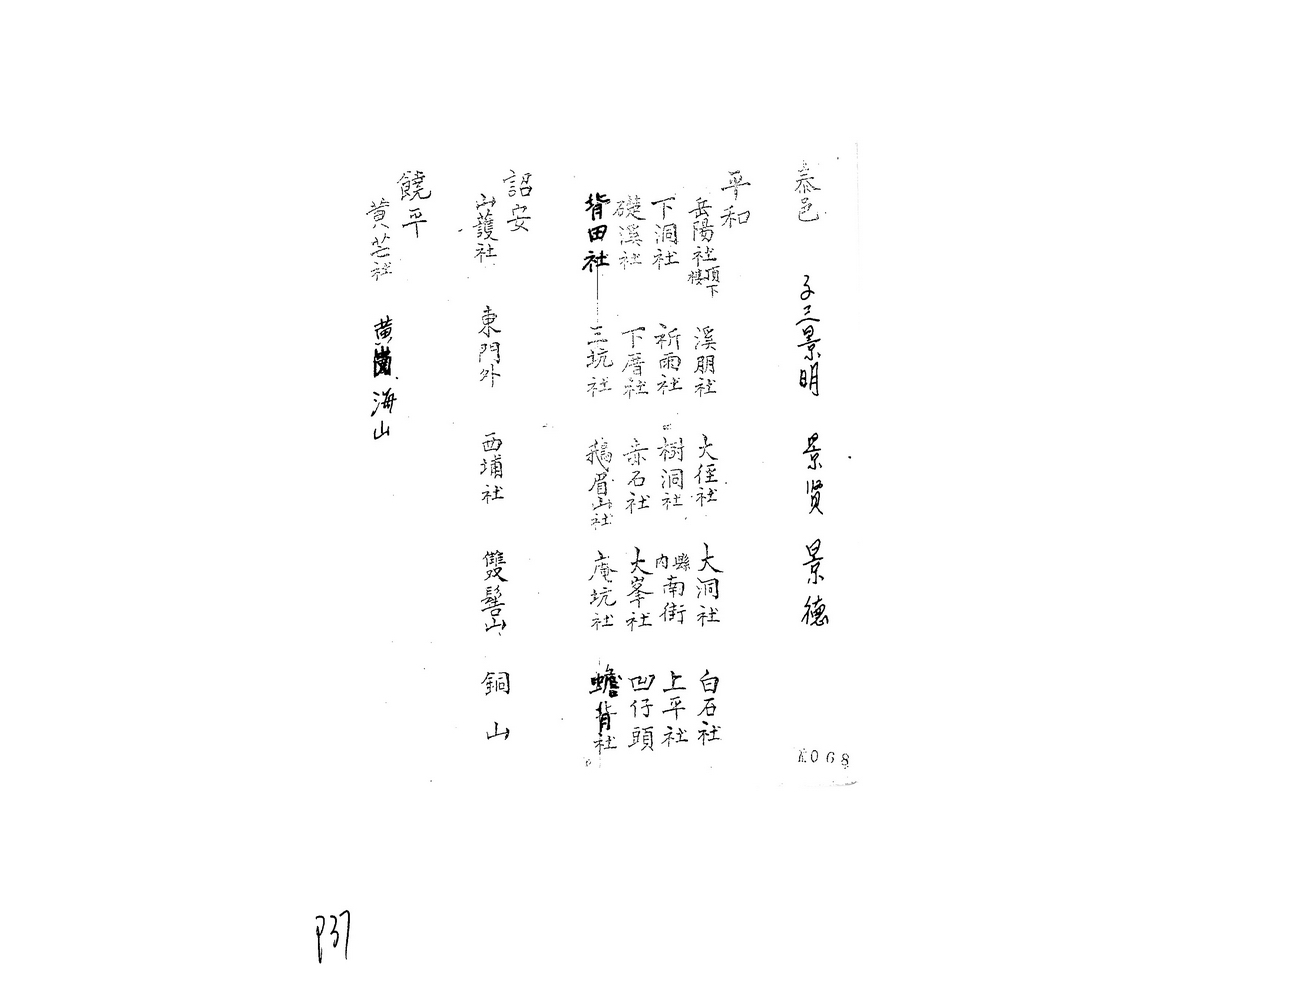 泰邑 子三景明 景賢 景德
平和
岳陽社頂下樓 溪朋社 大徑社 大洞社 白石社
下洞社 祈雨社 樹洞社 縣內南街 上平社
礎溪社 下厝社 赤石社 大峯社 凹仔頭
背田社 三坑社 鵝眉山社 庵坑社 蟾背社
詔安
山護社 東門外 西埔社 雙髻山 銅山
饒平
黃芒社 黃崗 海山
K068
P37